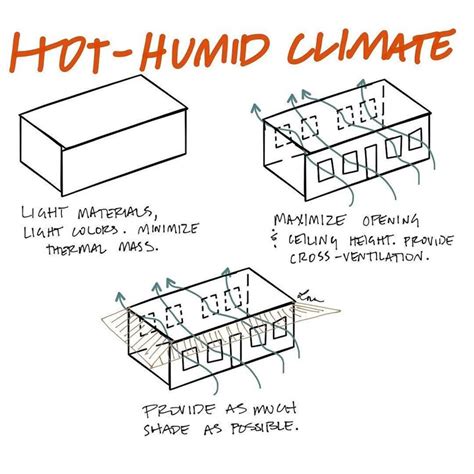 HOT-HUMID CLIMATE
LIGHT MATERIALS,
LIGHT COLORS. MINIMIZE
THERMAL MASS.
MAXIMIZE OPENING
& CEILING HEIGHT. PROVIDE
CROSS-VENTILATION.
PROVIDE AS MUCH
SHADE AS POSSIBLE.